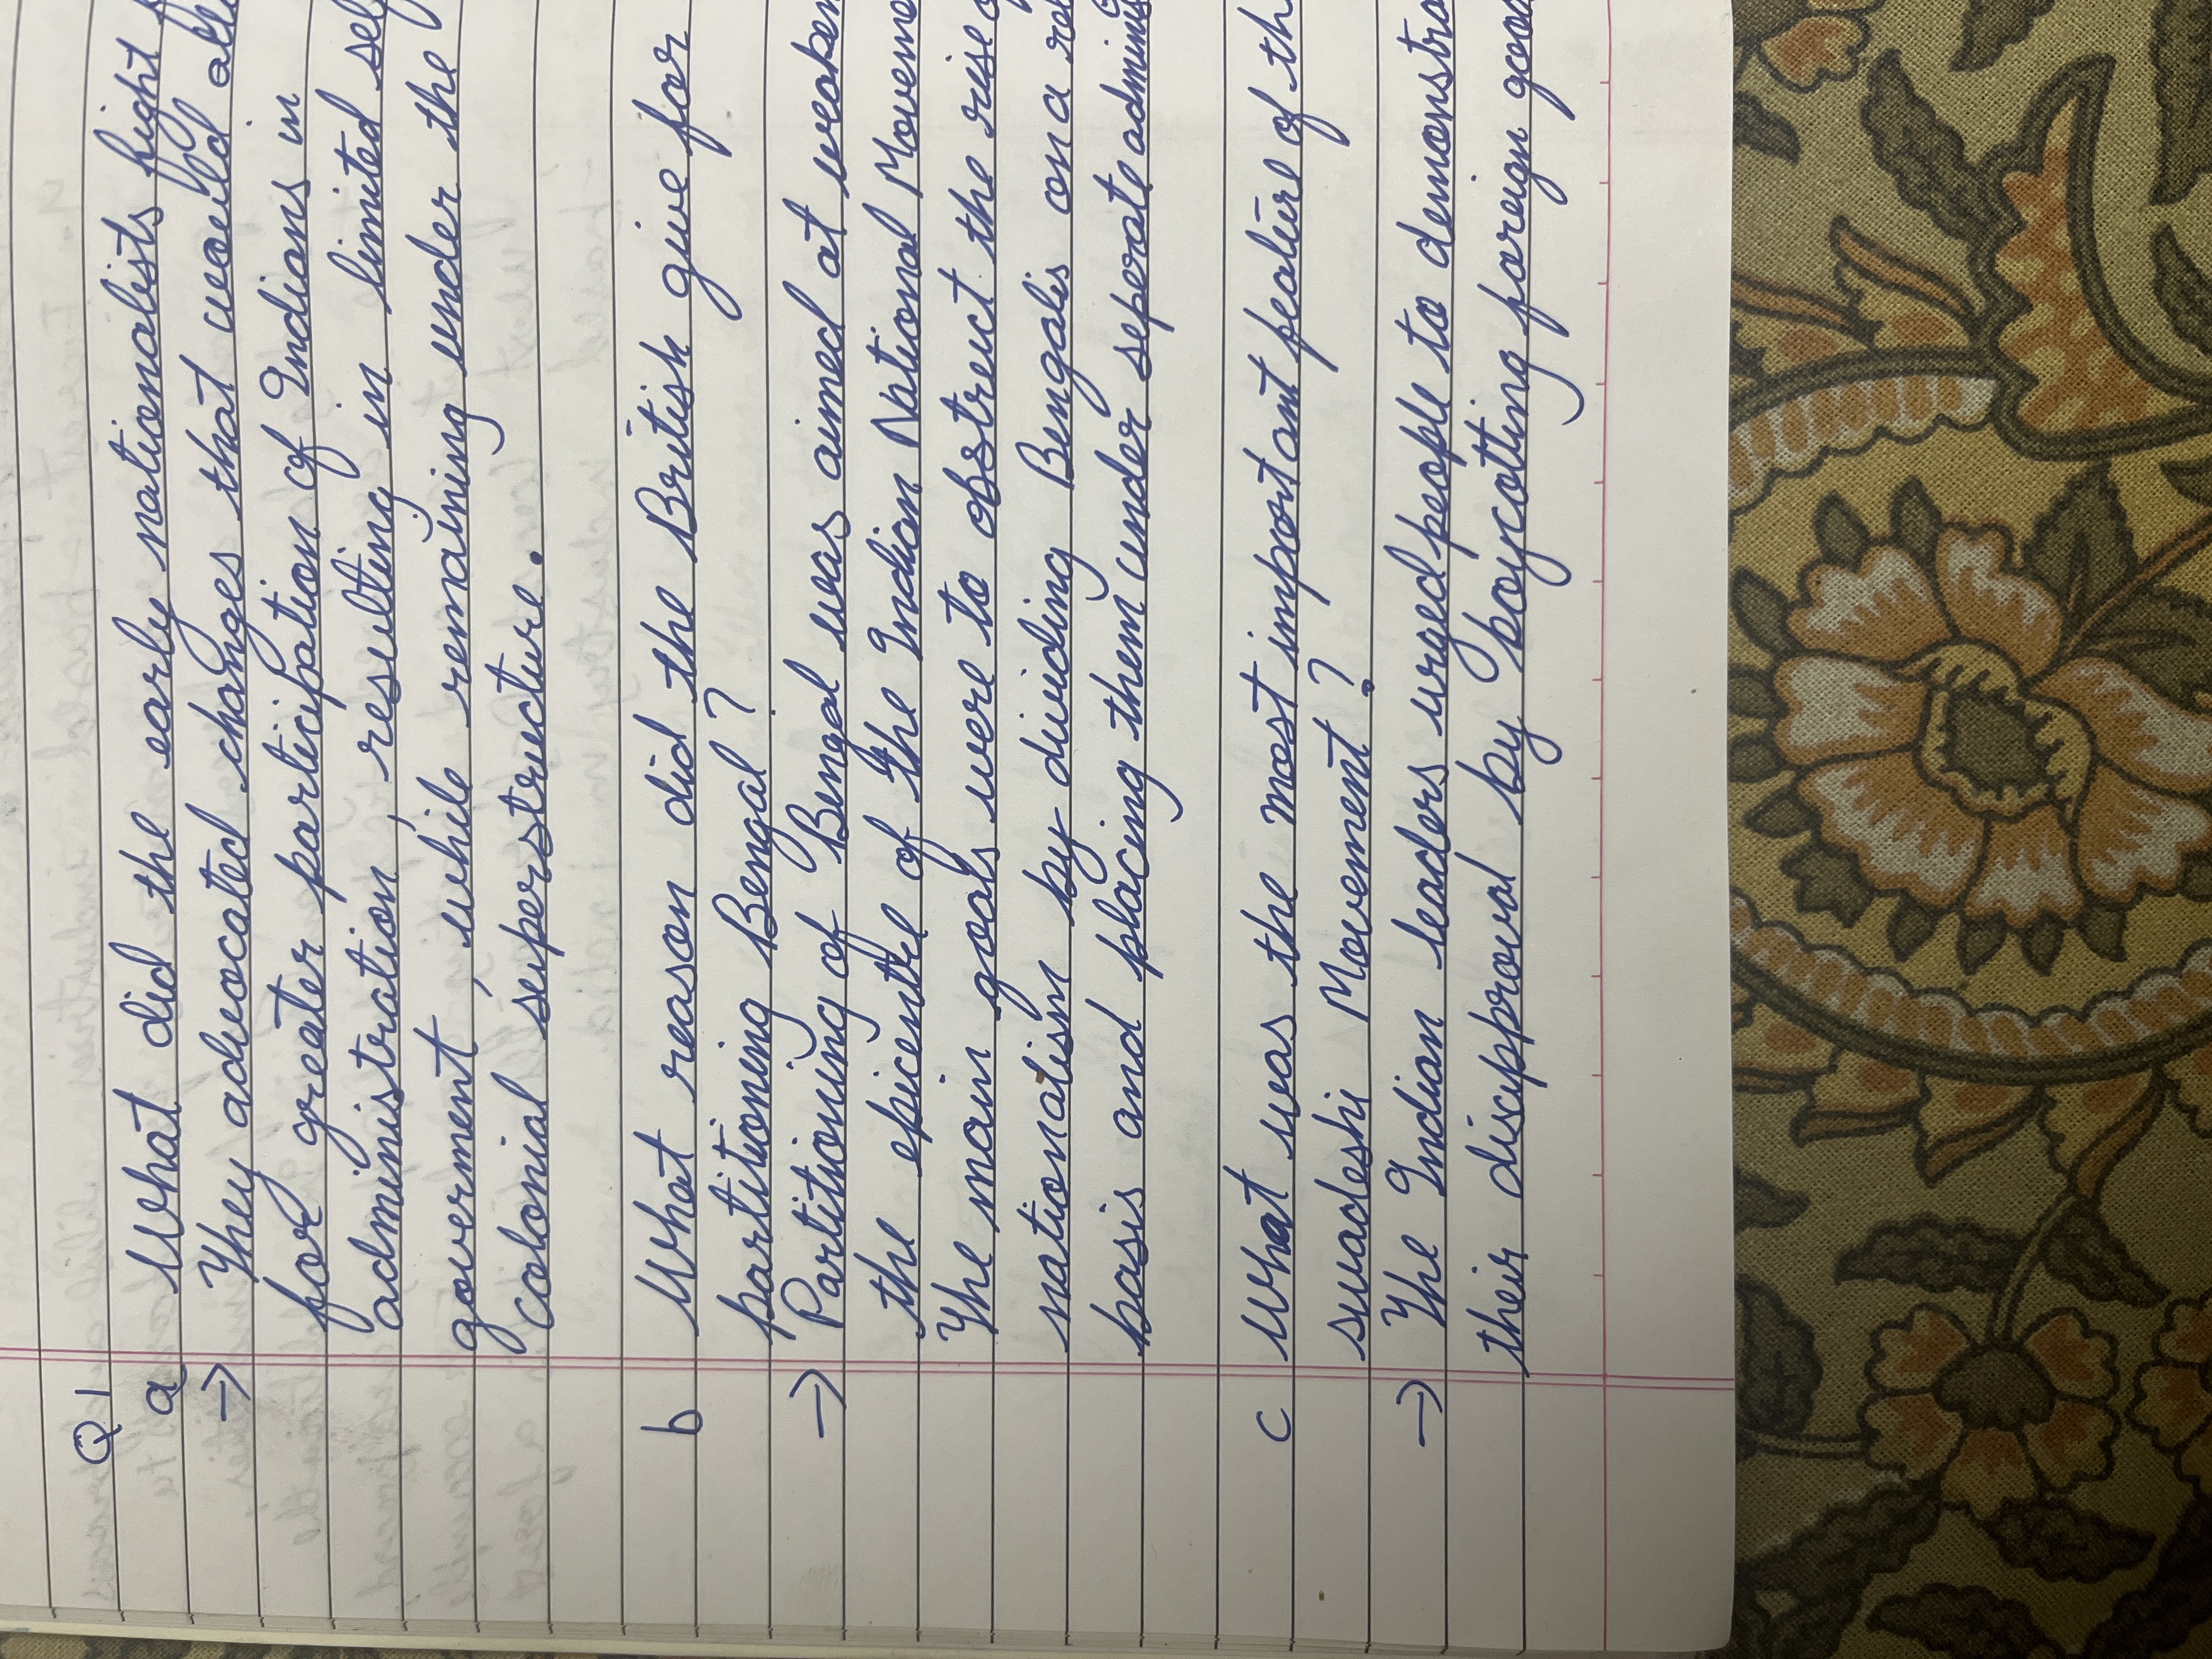 Q1
a What did the early nationalists fight
→ They advocated changes that would
for greater participation of Indians in
administration, resulting in limited
government, while remaining under the
colonial superstructure.
b What reason did the British give for
partitioning Bengal?
→ Partitioning of Bengal was aimed at
the epicentre of the Indian National
The main goals were to obstruct the rise
nationalism by dividing Bengalis on a
basis and placing them under seperate
c What was the most important feature of
swadeshi Movement?
→ The Indian leaders urged people to
their disapproval by boycotting foreign